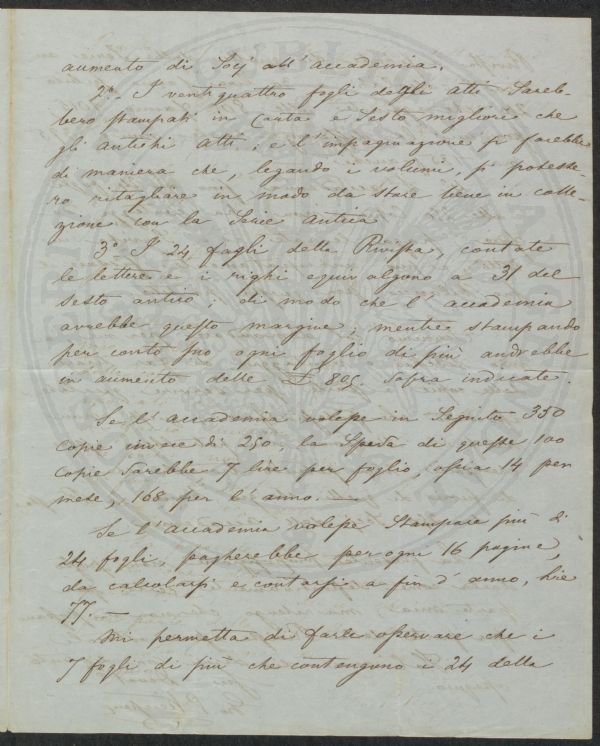 aumento di Socj all'accademia.
2º. I ventiquattro fogli degli atti sareb-
bero stampati in carta e sesto migliori che
gli antichi atti; e l'impaginazione si farebbe
di maniera che, legando i volumi, si potesse-
ro ritagliare in modo da stare bene in colle-
zione con la serie antica
3º I 24 fogli della Rivista, contate
le lettere e i righi equivalgono a 31 del
sesto antico; di modo che l'accademia
avrebbe questo margine; mentre stampando
per conto suo ogni foglio di più andrebbe
in aumento delle £ 805. sopra indicate.
Se l'accademia volesse in seguito 350
copie invece di 250, la spesa di queste 100
copie sarebbe 7 lire per foglio, ossia 14 per
mese, 168 per l'anno. —
Se l'accademia volesse stampare più di
24 fogli, pagherebbe per ogni 16 pagine,
da calcolarsi e contarsi a fin d'anno, lire
77. —
Mi permetta di farle osservare che i
7 fogli di più che contengono i 24 della